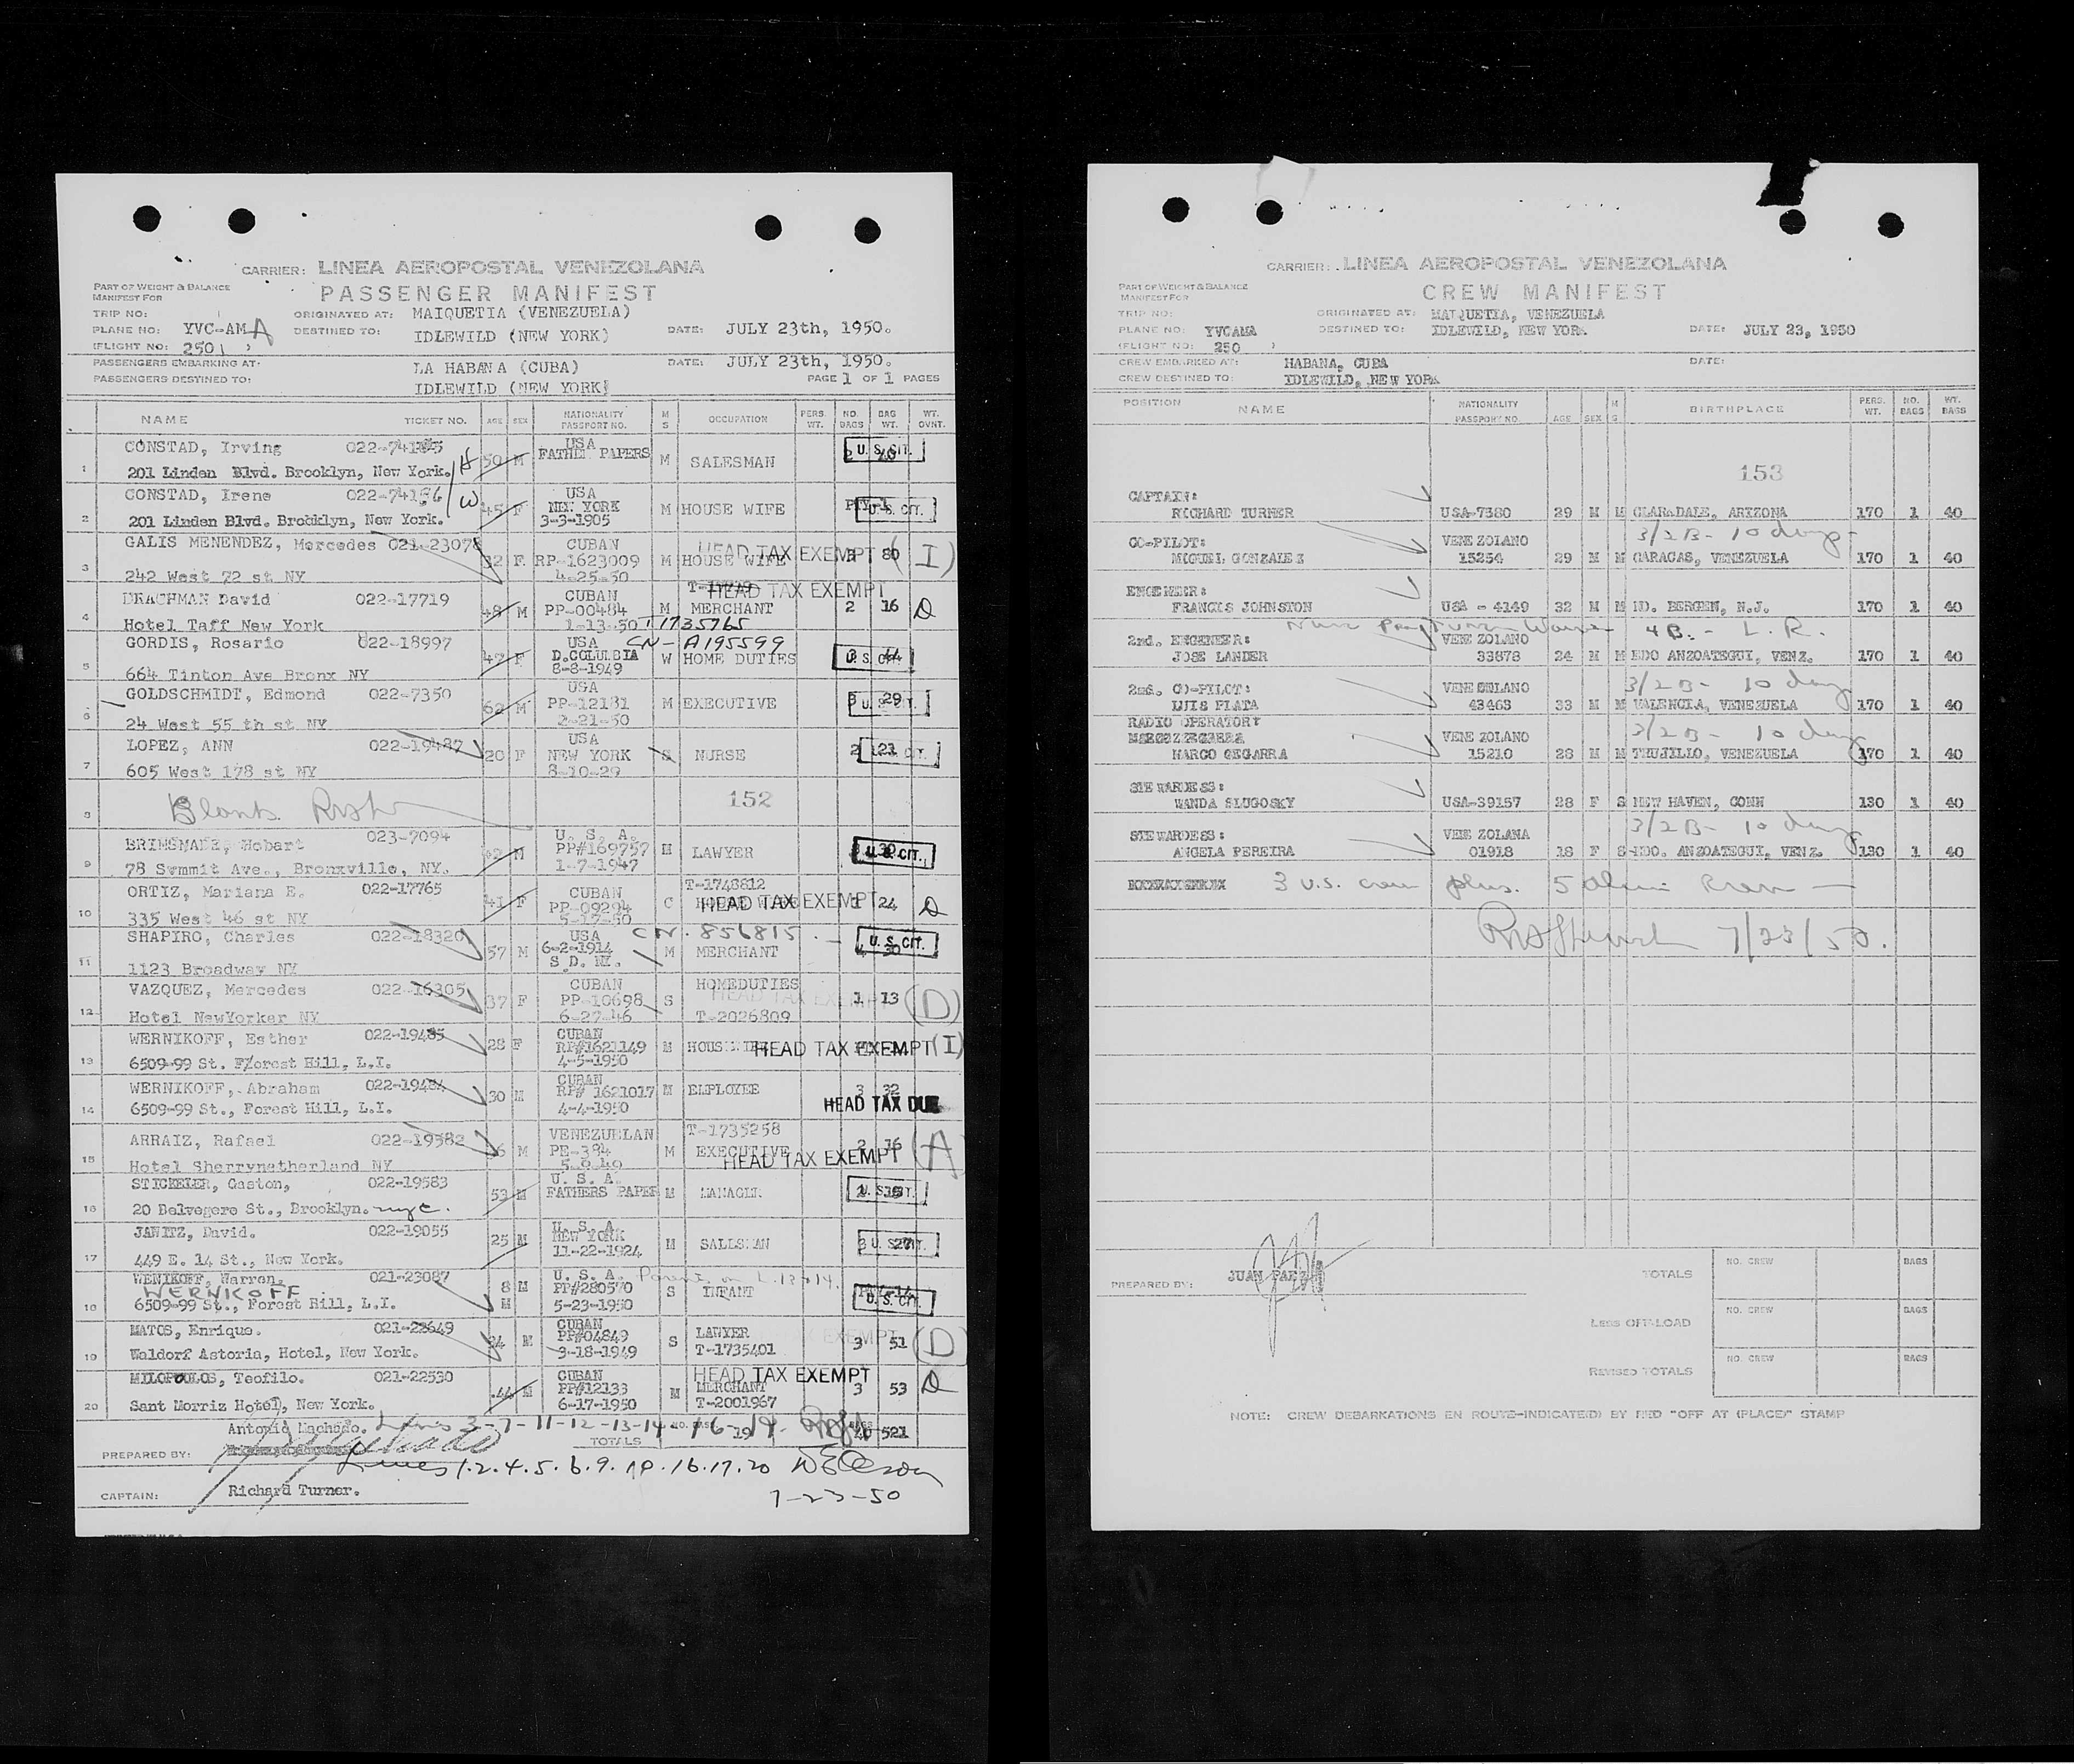 CARRIER: LINEA AEROPOSTAL VENEZOLANA
PART OF WEIGHT & BALANCE
MANIFEST FOR
PASSENGER MANIFEST
TRIP NO:
ORIGINATED AT: MAIQUETIA (VENEZUELA)
PLANE NO: YVC-AMA
DESTINED TO: IDLEWILD (NEW YORK)
DATE: JULY 23th, 1950.
(FLIGHT NO: 250 )
PASSENGERS EMBARKING AT: LA HABANA (CUBA)
DATE: JULY 23th, 1950.
PASSENGERS DESTINED TO: IDLEWILD (NEW YORK)
PAGE 1 OF 1 PAGES
NAME TICKET NO. AGE SEX NATIONALITY PASSPORT NO. M S OCCUPATION PERS. WT. NO. BAGS BAG WT. WT. OVNT.
1 CONSTAD, Irving 50 M USA M SALESMAN U. S. CIT.
201 Linden Blvd. Brooklyn, New York. H
2 CONSTAD, Irene 022-74186 45 F USA NEW YORK 3-3-1905 M HOUSE WIFE U. S. CIT.
201 Linden Blvd. Brooklyn, New York. W
3 GALIS MENENDEZ, Mercedes 021-23078 32 F CUBAN RP-1623009 4-25-50 M HOUSE WIFE HEAD TAX EXEMPT 80 (I)
242 West 72 st NY
4 DRACHMAN David 022-17719 48 M CUBAN PP-00484 1-13-50 M MERCHANT T1735765 HEAD TAX EXEMPT 2 16 D
Hotel Taff New York
5 GORDIS, Rosario 022-18997 F USA D.COLUMBIA 8-8-1949 CN-A195599 W HOME DUTIES 44
664 Tinton Ave Bronx NY
6 GOLDSCHMIDT, Edmond 022-7350 62 M USA PP-12181 2-21-50 M EXECUTIVE 29
24 West 55 th st NY
7 LOPEZ, ANN 022-19487 20 F USA NEW YORK 8-10-29 S NURSE 2
605 West 178 st NY
8 Blank 152
9 Hobart 023-7094 M U. S. A. PP#169757 1-7-1947 M LAWYER U. S. CIT.
78 Summit Ave., Bronxville, NY.
10 ORTIZ, Mariana E. 022-17765 41 F CUBAN PP-09294 5-17-50 C T-1748812 HEAD TAX EXEMPT 24 D
335 West 46 st NY
11 SHAPIRO, Charles 022-18320 57 M USA 6-2-1914 S.D. NY. CN. 856815. M MERCHANT U. S. CIT. 30
1123 Broadway NY
12 VAZQUEZ, Mercedes 022-16305 37 F CUBAN PP-10698 6-27-46 S HOMEDUTIES T-2026809 HEAD TAX EXEMPT 1 13 (D)
Hotel NewYorker NY
13 WERNIKOFF, Esther 022-19485 28 F CUBAN RP#1621149 4-5-1950 M HOUSEWIFE HEAD TAX EXEMPT (I)
6509-99 St. F/orest Hill, L.I.
14 WERNIKOFF, Abraham 022-19484 30 M CUBAN RP# 1621017 4-4-1950 M EMPLOYEE 3 32 HEAD TAX DUE
6509-99 St., Forest Hill, L.I.
15 ARRAIZ, Rafael 022-19582 M VENEZUELAN PE-384 M T-1735258 EXECUTIVE HEAD TAX EXEMPT 2 16 (A)
Hotel Sherrynetherland NY
16 STICKELER, Gaston, 022-19583 53 M U. S. A. FATHERS PAPER M MANAGER
20 Belvegere St., Brooklyn. nyc.
17 JAWITZ, David. 022-19055 25 M U. S. A. NEW YORK 11-22-1924 M SALESMAN 3
449 E. 14 St., New York.
18 WENIKOFF, Warren. 021-23087 8 M M U. S. A. PP#280570 5-23-1950 Parents on L. 13+14. S INFANT U. S. CIT.
WERNIKOFF
6509-99 St., Forest Hill, L.I.
19 MATOS, Enrique. 021-22649 M CUBAN PP#04849 3-18-1949 S LAWYER T-1735401 3 51 (D)
Waldorf Astoria, Hotel, New York.
20 MILOPOULOS, Teofilo. 021-22530 44 M CUBAN PP#12133 6-17-1950 M HEAD TAX EXEMPT MERCHANT T-2001967 3 53 D
Sant Morriz Hotel, New York.
Antonio Machado. Lines 3-7-11-12-13-14
TOTALS 19 521
PREPARED BY:
Lines 1.2.4.5.6.9.10.16.17.20
CAPTAIN: Richard Turner.
7-23-50
CARRIER: LINEA AEROPOSTAL VENEZOLANA
PART OF WEIGHT & BALANCE
MANIFEST FOR
CREW MANIFEST
TRIP NO:
ORIGINATED AT: MAIQUETIA, VENEZUELA
PLANE NO: YVCAMA
DESTINED TO: IDLEWILD, NEW YORK
DATE: JULY 23, 1950
(FLIGHT NO: 250 )
CREW EMBARKED AT: HABANA, CUBA
DATE:
CREW DESTINED TO: IDLEWILD, NEW YORK
POSITION NAME NATIONALITY PASSPORT NO. AGE SEX M S BIRTHPLACE PERS. WT. NO. BAGS WT. BAGS
153
CAPTAIN:
RICHARD TURNER USA-7380 29 M M CLARADALE, ARIZONA 170 1 40
CO-PILOT: VENEZOLANO 3/2B- 10 days-
MIGUEL GONZALEZ 15254 29 M M CARACAS, VENEZUELA 170 1 40
ENGENEER:
FRANCIS JOHNSTON USA - 4149 32 M M NO. BERGEN, N.J. 170 1 40
2nd. ENGENEER: VENEZOLANO 4B. - L. R.
JOSE LANDER 33878 24 M M EDO ANZOATEGUI, VENZ. 170 1 40
2nd. CO-PILOT: VENEZOLANO 3/2B- 10 days
LUIS PLATA 43463 33 M M VALENCIA, VENEZUELA 170 1 40
RADIO OPERATOR:
VENEZOLANO 3/2B- 10 days
MARCO GEGARRA 15210 28 M M TRUJILLO, VENEZUELA 170 1 40
STEWARDESS:
WANDA SLUGOSKY USA-39157 28 F S NEW HAVEN, CONN 130 1 40
STEWARDESS: VENEZOLANA 3/2B- 10 days
ANGELA PEREIRA 01918 18 F S EDO. ANZOATEGUI, VENZ. 130 1 40
3 U.S. crew plus. 5 alien
7/23/50.
PREPARED BY: JUAN PAEZ
TOTALS NO. CREW BAGS
LESS OFF-LOAD NO. CREW BAGS
REVISED TOTALS NO. CREW BAGS
NOTE: CREW DEBARKATIONS EN ROUTE-INDICATE(D) BY RED "OFF AT (PLACE)" STAMP